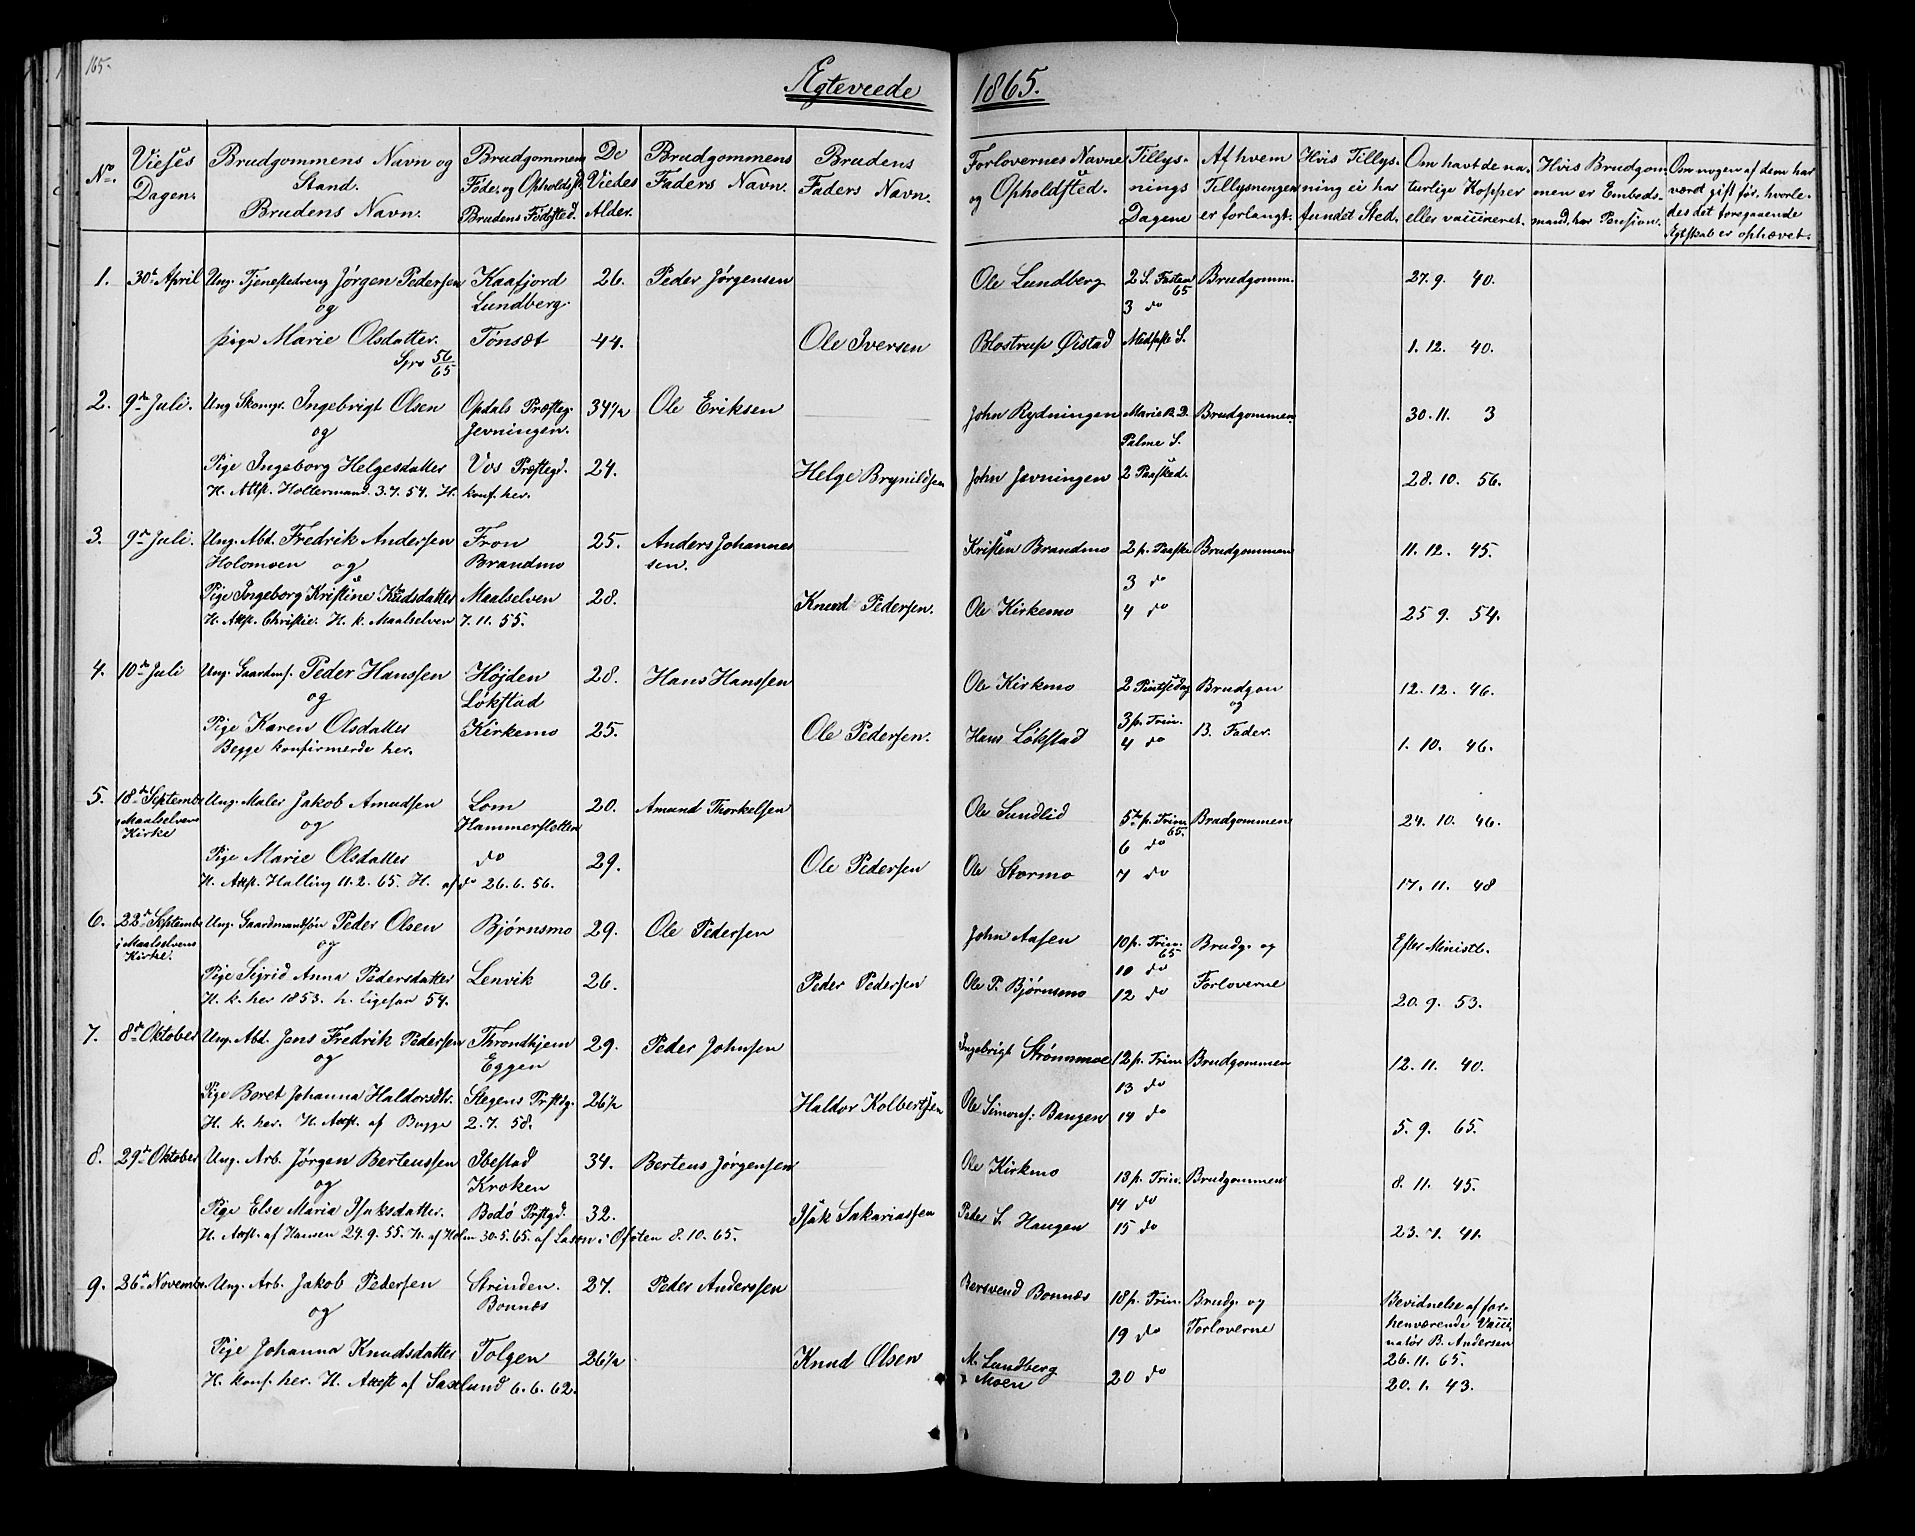 165.
Ægteviede 1865.
No. Vieses Dagen. Brudgommens Navn og Stand. Brudens Navn. Brudgommens Føde, og Opholdsst. Brudens Fødested. De Viedes Alder. Brudgommens Faders Navn. Brudens Faders Navn. Forlovernes Navne og Opholdsted. Tillysnings Dagene Af hvem Tillysningen er forlangt. Hvis Tillysning ei har fundet Sted. Om havt de naturlige Kopper eller vaccineret. Hvis Brudgommen er Embedsmand, har Pension. Om nogen af dem har været gift før, hvorledes det foregaaende Egteskab er ophævet.
1. 30te April Ung. Tjenestedreng Jørgen Pedersen Kaafjord 26. Peder Jørgensen Ole Lundberg 2 S. Fasten 65 Brudgomm. 27. 9. 40.
og Lundberg. 3 do
pige Marie Olsdatter. Tønsæt 44. Ole Iversen Blostrup Øistad Midfste S. 1. 12. 40.
Spro 56/65
2. 9de Juli. Ung Skomg. Ingebrigt Olsen Opdals Præsteg. 34½ Ole Eriksen John Rydningen Marie B. D. Brudgommen. 30. 11. 3
og Jevningen. Palme S.
Pige Ingeborg Helgesdatter Vos Præstegd. 24. Helge Brynildsen John Jevningen 2 Paasked. 28. 10. 56.
H. Attst. Holtermand 3. 7. 54. H. konf. her.
3. 9de Juli. Ung. Abd. Fredrik Andersen Fron 25. Anders Johannes Kristen Brandmo 2 p. Paaske Brudgommen 11. 12. 45.
Holomoen og Brandmo sen. 3 do
Pige Ingeborg Kristine Knudsdatter Maalselven 28. Knud Pedersen. Ole Kirkemo 4 do 25 9. 54.
H. Attst. Christie. H. k. Maalselven 7. 11. 55.
4. 10de Juli Ung. Gaardmf. Peder Hanssen Højden 28. Hans Hanssen Ole Kirkmo 2 Pintsedag Brudgom 12. 12. 46.
og Løkstad 3 p. Trin. og
Pige Karen Olsdatter Kirkemo 25. Ole Pedersen. Hans Løkstad 4 do B. Fader. 1. 10. 46.
Begge konfirmerde her.
5. 18de September Ung. Maler Jakob Amudsen Lom 20. Amund Thorkelsen Ole Sundlid 5te p. Trin. 65. Brudgommen 24. 10. 46.
i Maalselvens Kirke og Hammerslotten 6 do
Pige Marie Olsdatter do 29. Ole Pedersen Ole Stormo 7 do 17. 11. 48
H. Attst. Halling 11. 2. 65. H. af do 26. 6. 56.
6. 22de September Ung. Gaardmandsøn Peder Olsen Bjørnsmo 29. Ole Pedersen John Aasen 10 p. Trin. 65 Brudg. og Efter Ministb.
i Maalselvens Kirke. og 10 do
Pige Sigrid Anna Pedersdatter Lenvik 26. Peder Pedersen Ole P. Bjørnsmo 12 do Forloverne 20. 9. 53.
H. k. her 1853. h. ligesaa 54.
7. 8de Oktober Ung. Abd. Jens Fredrik Pedersen Throndhjem 29. Peder Johnsen Ingebrigt Strømmoe 12 p. Trin Brudgommen 12. 11. 40.
og Eggen 13 do
Pige Beret Johanna Haldorsdtr. Stegens Prstdg. 26½ Haldor Kolbertsen Ole Simons: Bangen 14 do 5. 9. 65.
H. k. her. H. Attst. af Bugge 2. 7. 58.
8. 29de Oktober Ung. Arb. Jørgen Bertenssen Ibestad 34. Bertens Jørgensen Ole Kirkmo 13 p. Trin. Brudgommen 8. 11. 45.
og Kroken 14 do
Pige Else Maria Isaksdatter. Bodø Prstgd. 32. Isak Sakariassen Peder S. Haugen 15 do 23. 7. 41.
H. Attst. af Hansen 24. 9. 55. H. af Holm 30. 5. 65. af Lasen i Ofoten 8. 10. 65.
9. 26de November. Ung. Arb. Jakob Pedersen Strinden. 27. Peder Anderssen Bersvend Bonnæs 18 p. Trin. Brudg. og Bevidnelse af for-
og Bonnæs 19 do Forloverne henværende Vacci
natør B. Andersen
Pige Johanna Knudsdatter Tolgen 26½ Knud Olsen M. Lundberg 26. 11. 65.
H. konf. her. H. Attst af Saxlund 6. 6. 62. Moen 20 do 20. 1. 43.